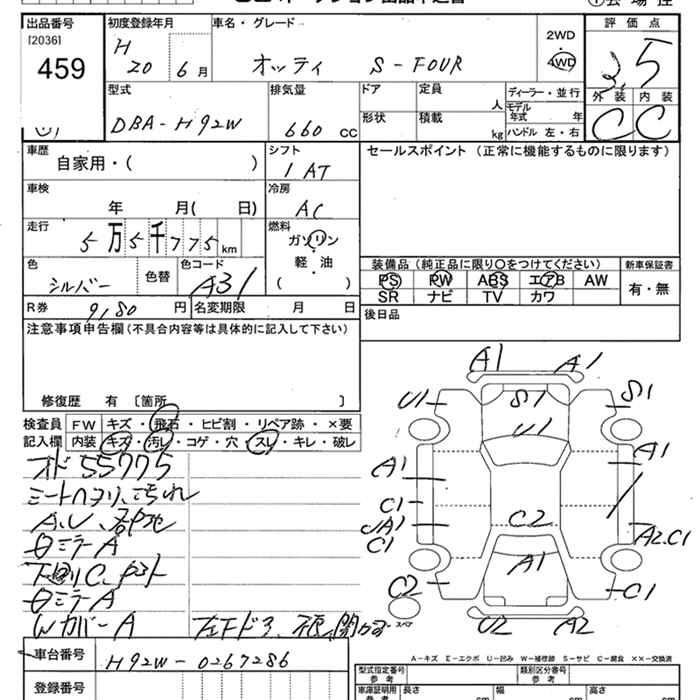 出品番号
[2036]
459
初度登録年月
H 20 6 月
車名・グレード
オッティ S-FOUR
2WD
・
4WD
評価点
3.5
外装 内装
C C
型式
DBA-H92W
排気量
660 cc
ドア
定員
人
ディーラー・並行
モデル年式 年
形状
積載
kg
ハンドル 左・右
車歴
自家用・( )
シフト
1 AT
セールスポイント (正常に機能するものに限ります)
車検
年 月( 日)
冷房
AC
走行
5万5千775km
燃料
ガソリン
軽・油
( )
色
シルバー
色替
色コード
A31
装備品 (純正品に限り○をつけてください)
新車保証書
PS PW ABS エアB AW
SR ナビ TV カワ
有・無
R券
9,180 円
名変期限 月 日
後日品
注意事項申告欄 (不具合内容等は具体的に記入して下さい)
修復歴 有 [箇所 ]
検査員記入欄
FW キズ・飛石・ヒビ割・リペア跡・×要
内装 キズ・汚レ・コゲ・穴・スレ・キレ・破レ
オド 55775
A.U
ミラーA
下回りC
ミラーA
WカバーA
A1 A1
U1 S1 S1
U1
A1 A1
C1
UA1
C1
C2
A2.C1
A1
C2 C1
スペア
U2 A2
車台番号
H92W-0267286
登録番号
A-キズ E-エクボ U-凹み W-補修跡 S-サビ C-腐食 ××-交換済
型式指定番号
参考
類別区分番号
参考
車庫証明用
参考
長さ
cm
幅
cm
高さ
cm